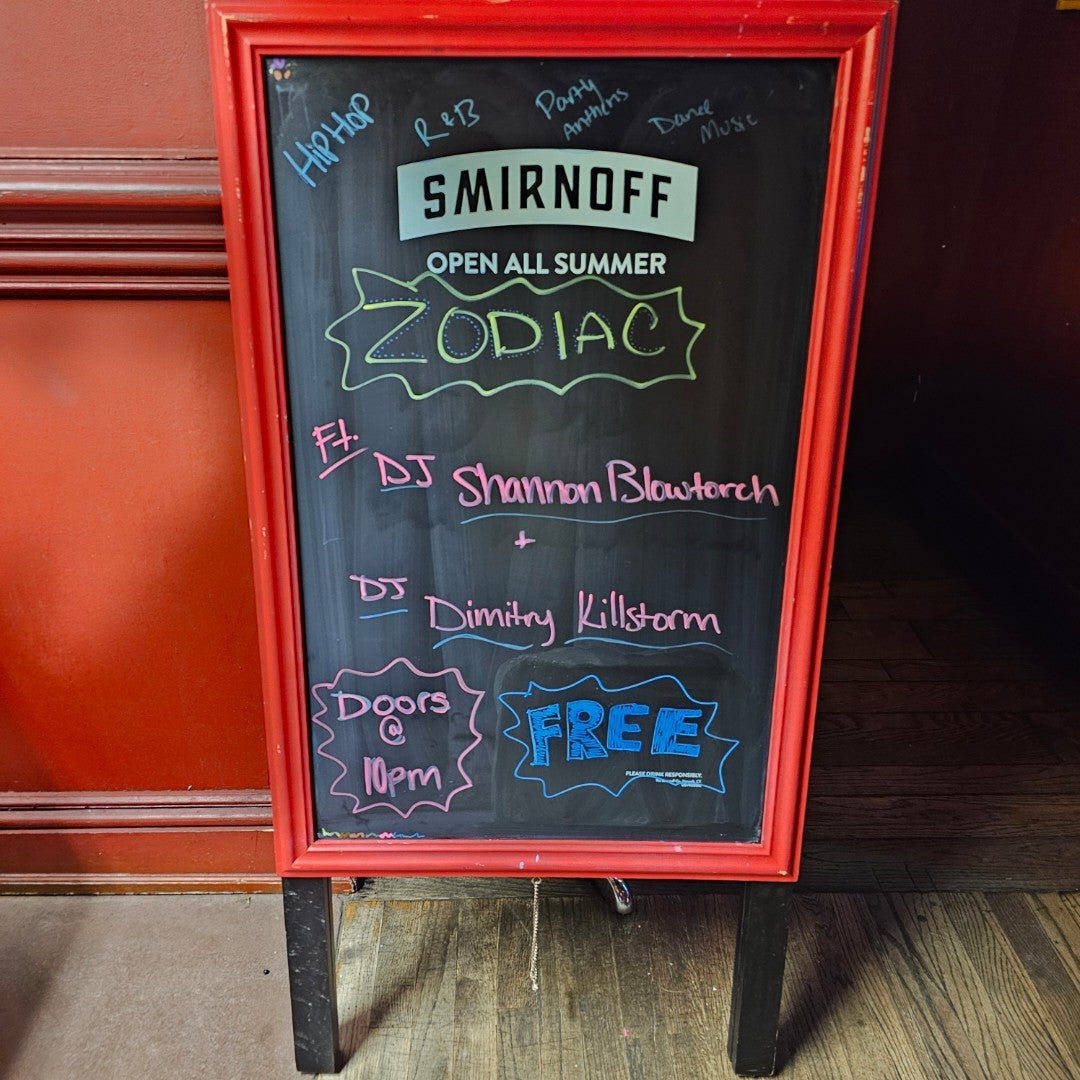 HipHop
R&B
Party
Anthems
Dance
Music
SMIRNOFF
OPEN ALL SUMMER
ZODIAC
Ft.
DJ Shannon Blowtorch
+
DJ Dimitry Killstorm
Doors
@
10pm
FREE
PLEASE DRINK RESPONSIBLY.